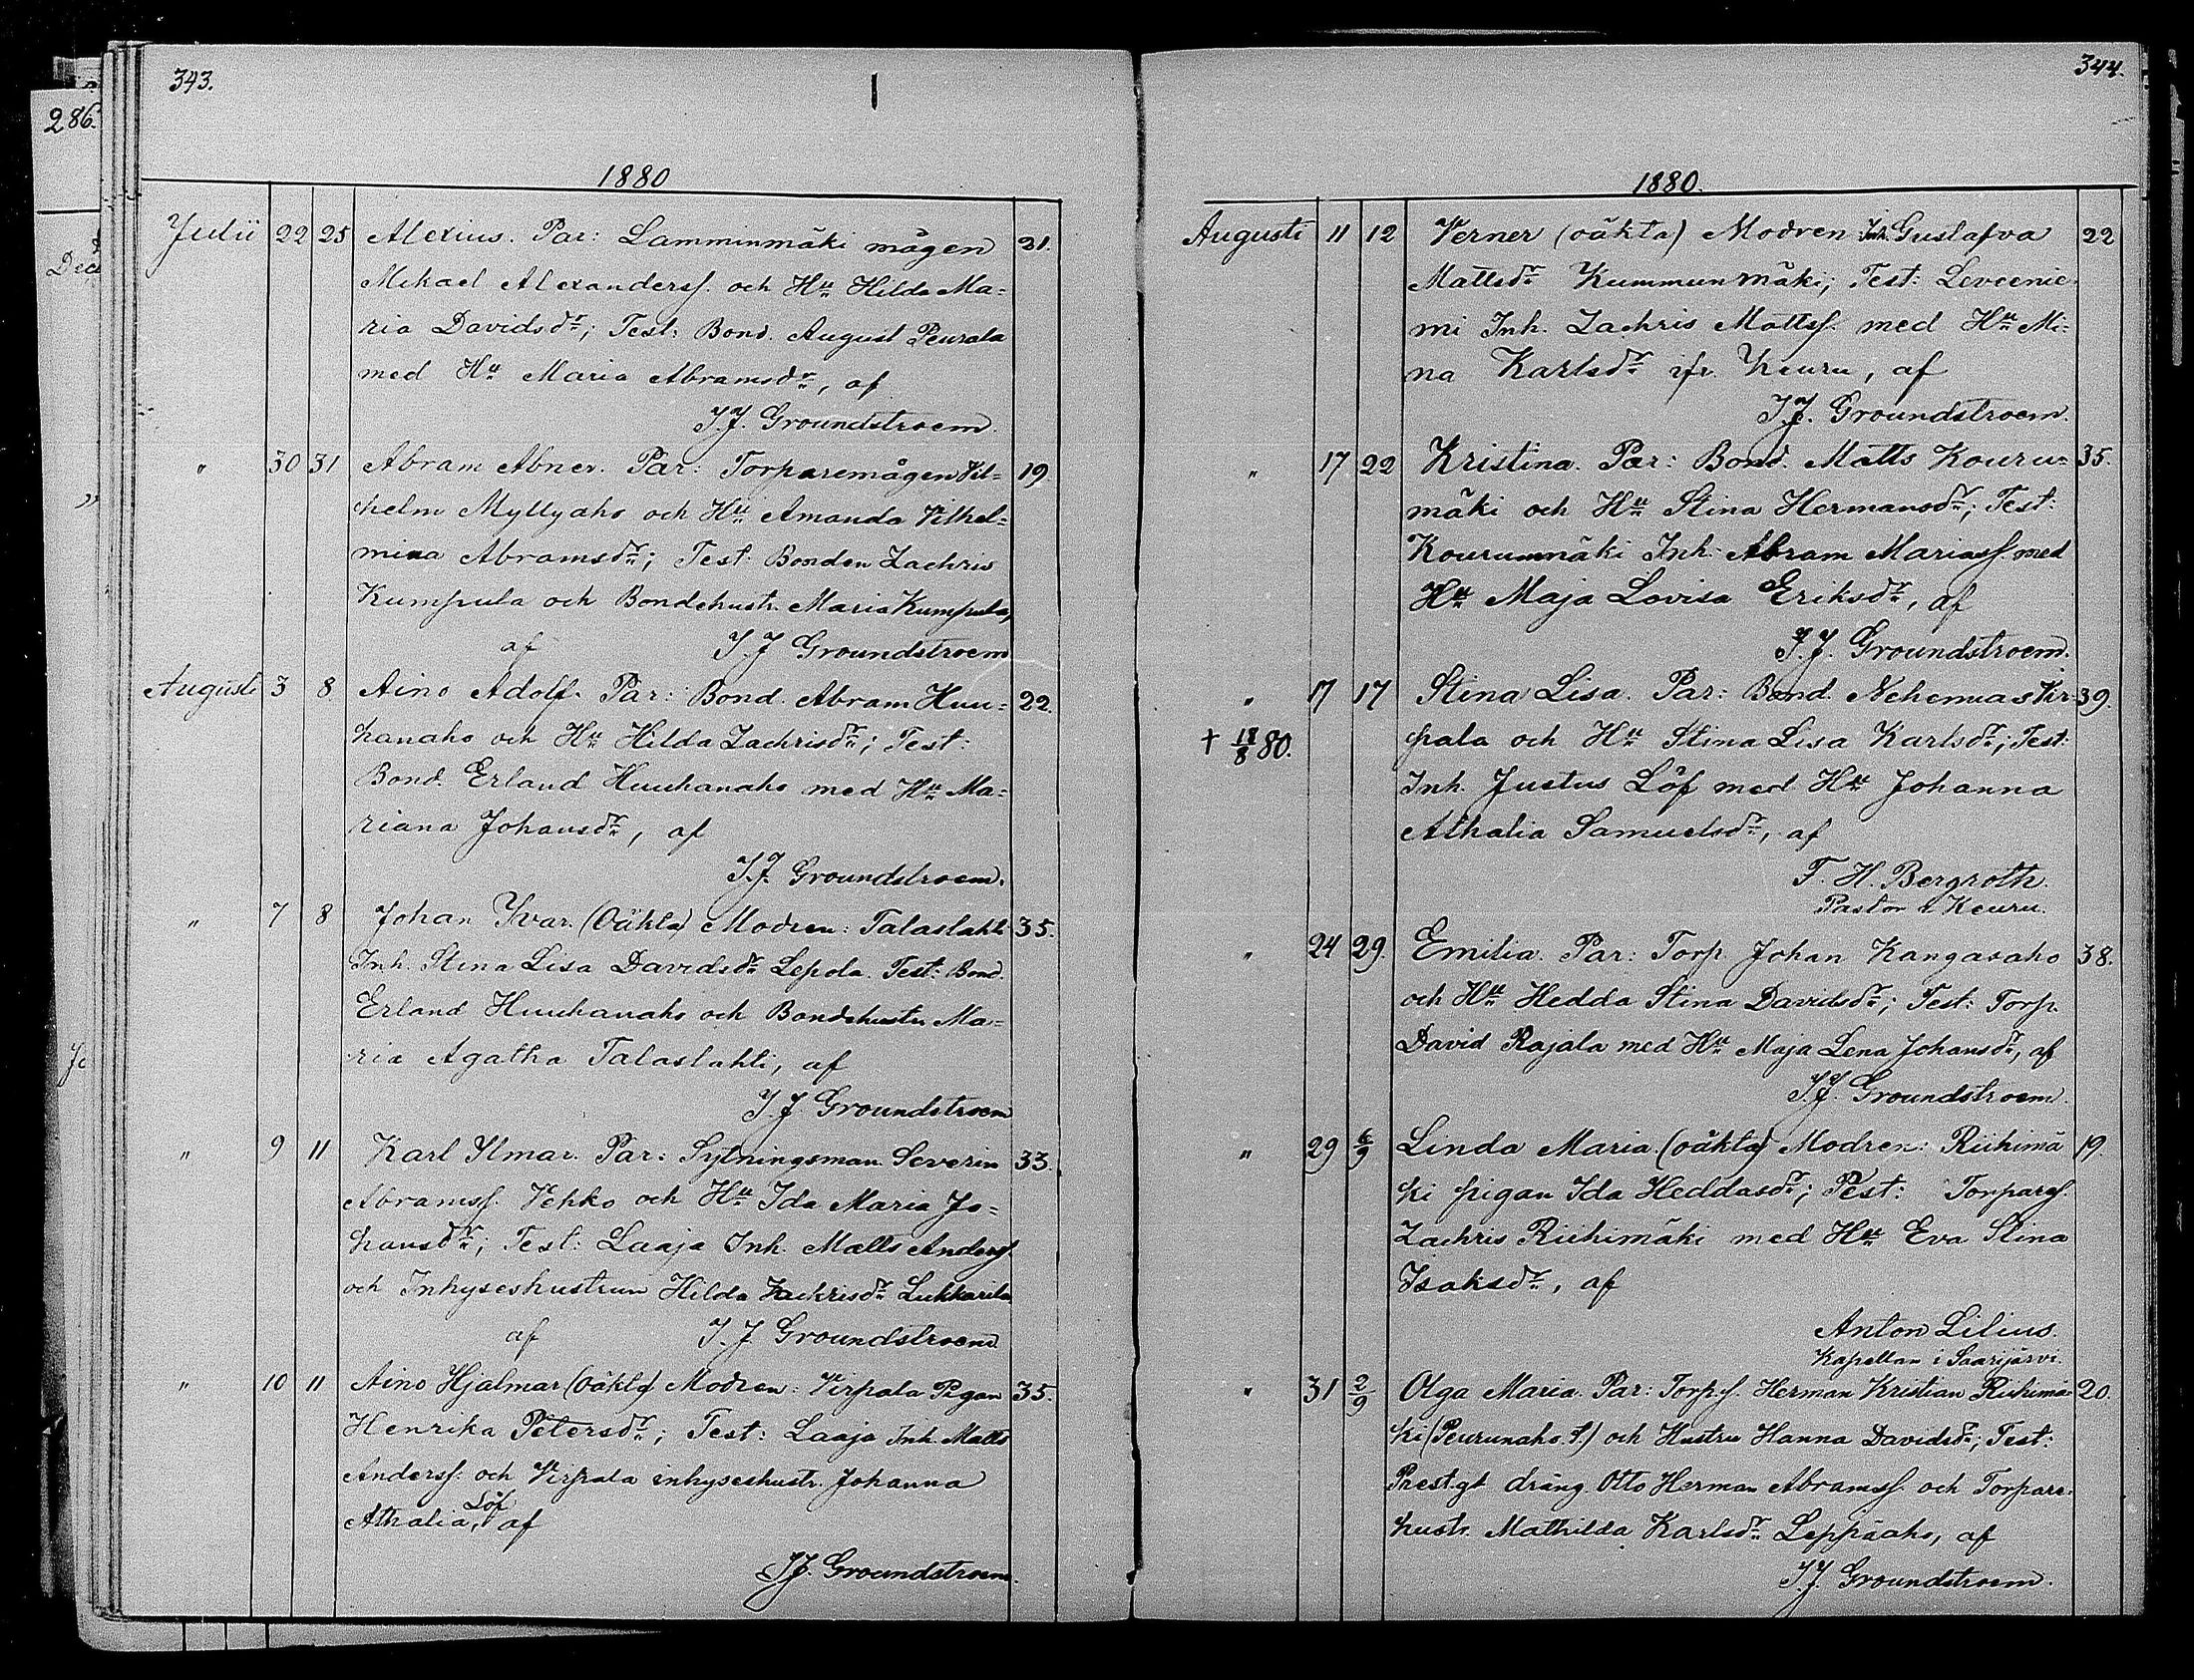 343.
286.
1880
Julii 22 25 Alexius. Par: Lamminmäki mågen 31.
Mikael Alexanderss. och Hu Hilda Ma=
ria Davidsdr; Test: Bond. August Peurala
med Hu Maria Abramsdr, af
I.J. Groundstroem.
" 30 31 Abram Abner. Par: Torparemågen Vil= 19.
helm Myllyaho och Hu Amanda Vilhel=
mina Abramsdr; Test: Bonden Zachris
Kumpula och Bondehustr. Maria Kumpula,
af I.J Groundstroem
Augusti 3 8 Aino Adolf. Par: Bond. Abram Huu= 22.
hanaho och Hu Hilda Zachrisdr; Test:
Bond. Erland Huuhanaho med Hu Ma=
riana Johansdr, af
I.J. Groundstroem.
" 7 8 Johan Yvar. (Oäkta) Modren: Talaslahti 35.
Inh. Stina Lisa Davidsdr Lepola. Test: Bond.
Erland Huuhanaho och Bondehustr Ma=
ria Agatha Talaslahti, af
I.J. Groundstroem
" 9 11 Karl Ylmar. Par: Sytningsman Severin 33.
Abramss. Vehko och Hu Ida Maria Jo=
hansdr; Test: Laaja Inh. Matts Anderss.
och Inhyseshustrun Hilda Zachrisdr Lukkarila
af I.J Groundstroem
" 10 11 Aino Hjalmar (Oäkta) Modren: Virpala Pigan 35.
Henrika Petersdr; Test: Laaja Inh. Matts
Anderss. och Virpala inhyseshustr. Johanna
Athalia, Löf af
I.J. Groundstroem.
344.
1880.
Augusti 11 12 Verner (oäkta) Modren Inh. Gustafva 22
Mattsdr Kummunmäki; Test: Leveenie
mi Inh. Zachris Mattss. med Hu Mi=
na Karlsdr ifr. Keuru, af
I.J. Groundstroem.
" 17 22 Kristina. Par: Bond. Matts Kouru= 35.
mäki och Hu Stina Hermansdr; Test:
Kourumäki Inh: Abram Mariass. med
Hu Maja Lovisa Eriksdr, af
I.J. Groundstroem.
" 17 17 Stina Lisa. Par: Bond. Nehemias Vir= 39.
† 18/8 80. pala och Hu Stina Lisa Karlsdr; Test:
Inh. Justus Löf med Hu Johanna
Athalia Samuelsdr, af
F. H. Bergroth.
Pastor i Keuru.
" 24 29. Emilia. Par: Torp. Johan Kangasaho 38.
och Hu Hedda Stina Davidsdr; Test: Torp.
David Rajala med Hu Maja Lena Johansdr, af
I.J. Groundstroem.
" 29 6/9 Linda Maria. (oäkta) Modren: Riihimä 19.
ki pigan Ida Heddasdr; Test: Torpares.
Zachris Riihimäki med Hu Eva Stina
Isaksdr, af
Anton Lilius.
Kapellan i Saarijärvi.
" 31 2/9 Olga Maria. Par: Torps. Herman Kristian Riihimä= 20.
ki (Peurunaho. t.) och Hustru Hanna Davidsdr; Test:
Prestgt dräng Otto Herman Abramss. och Torpare.
hustr. Mathilda Karlsdr Leppäaho, af
I.J. Groundstroem.